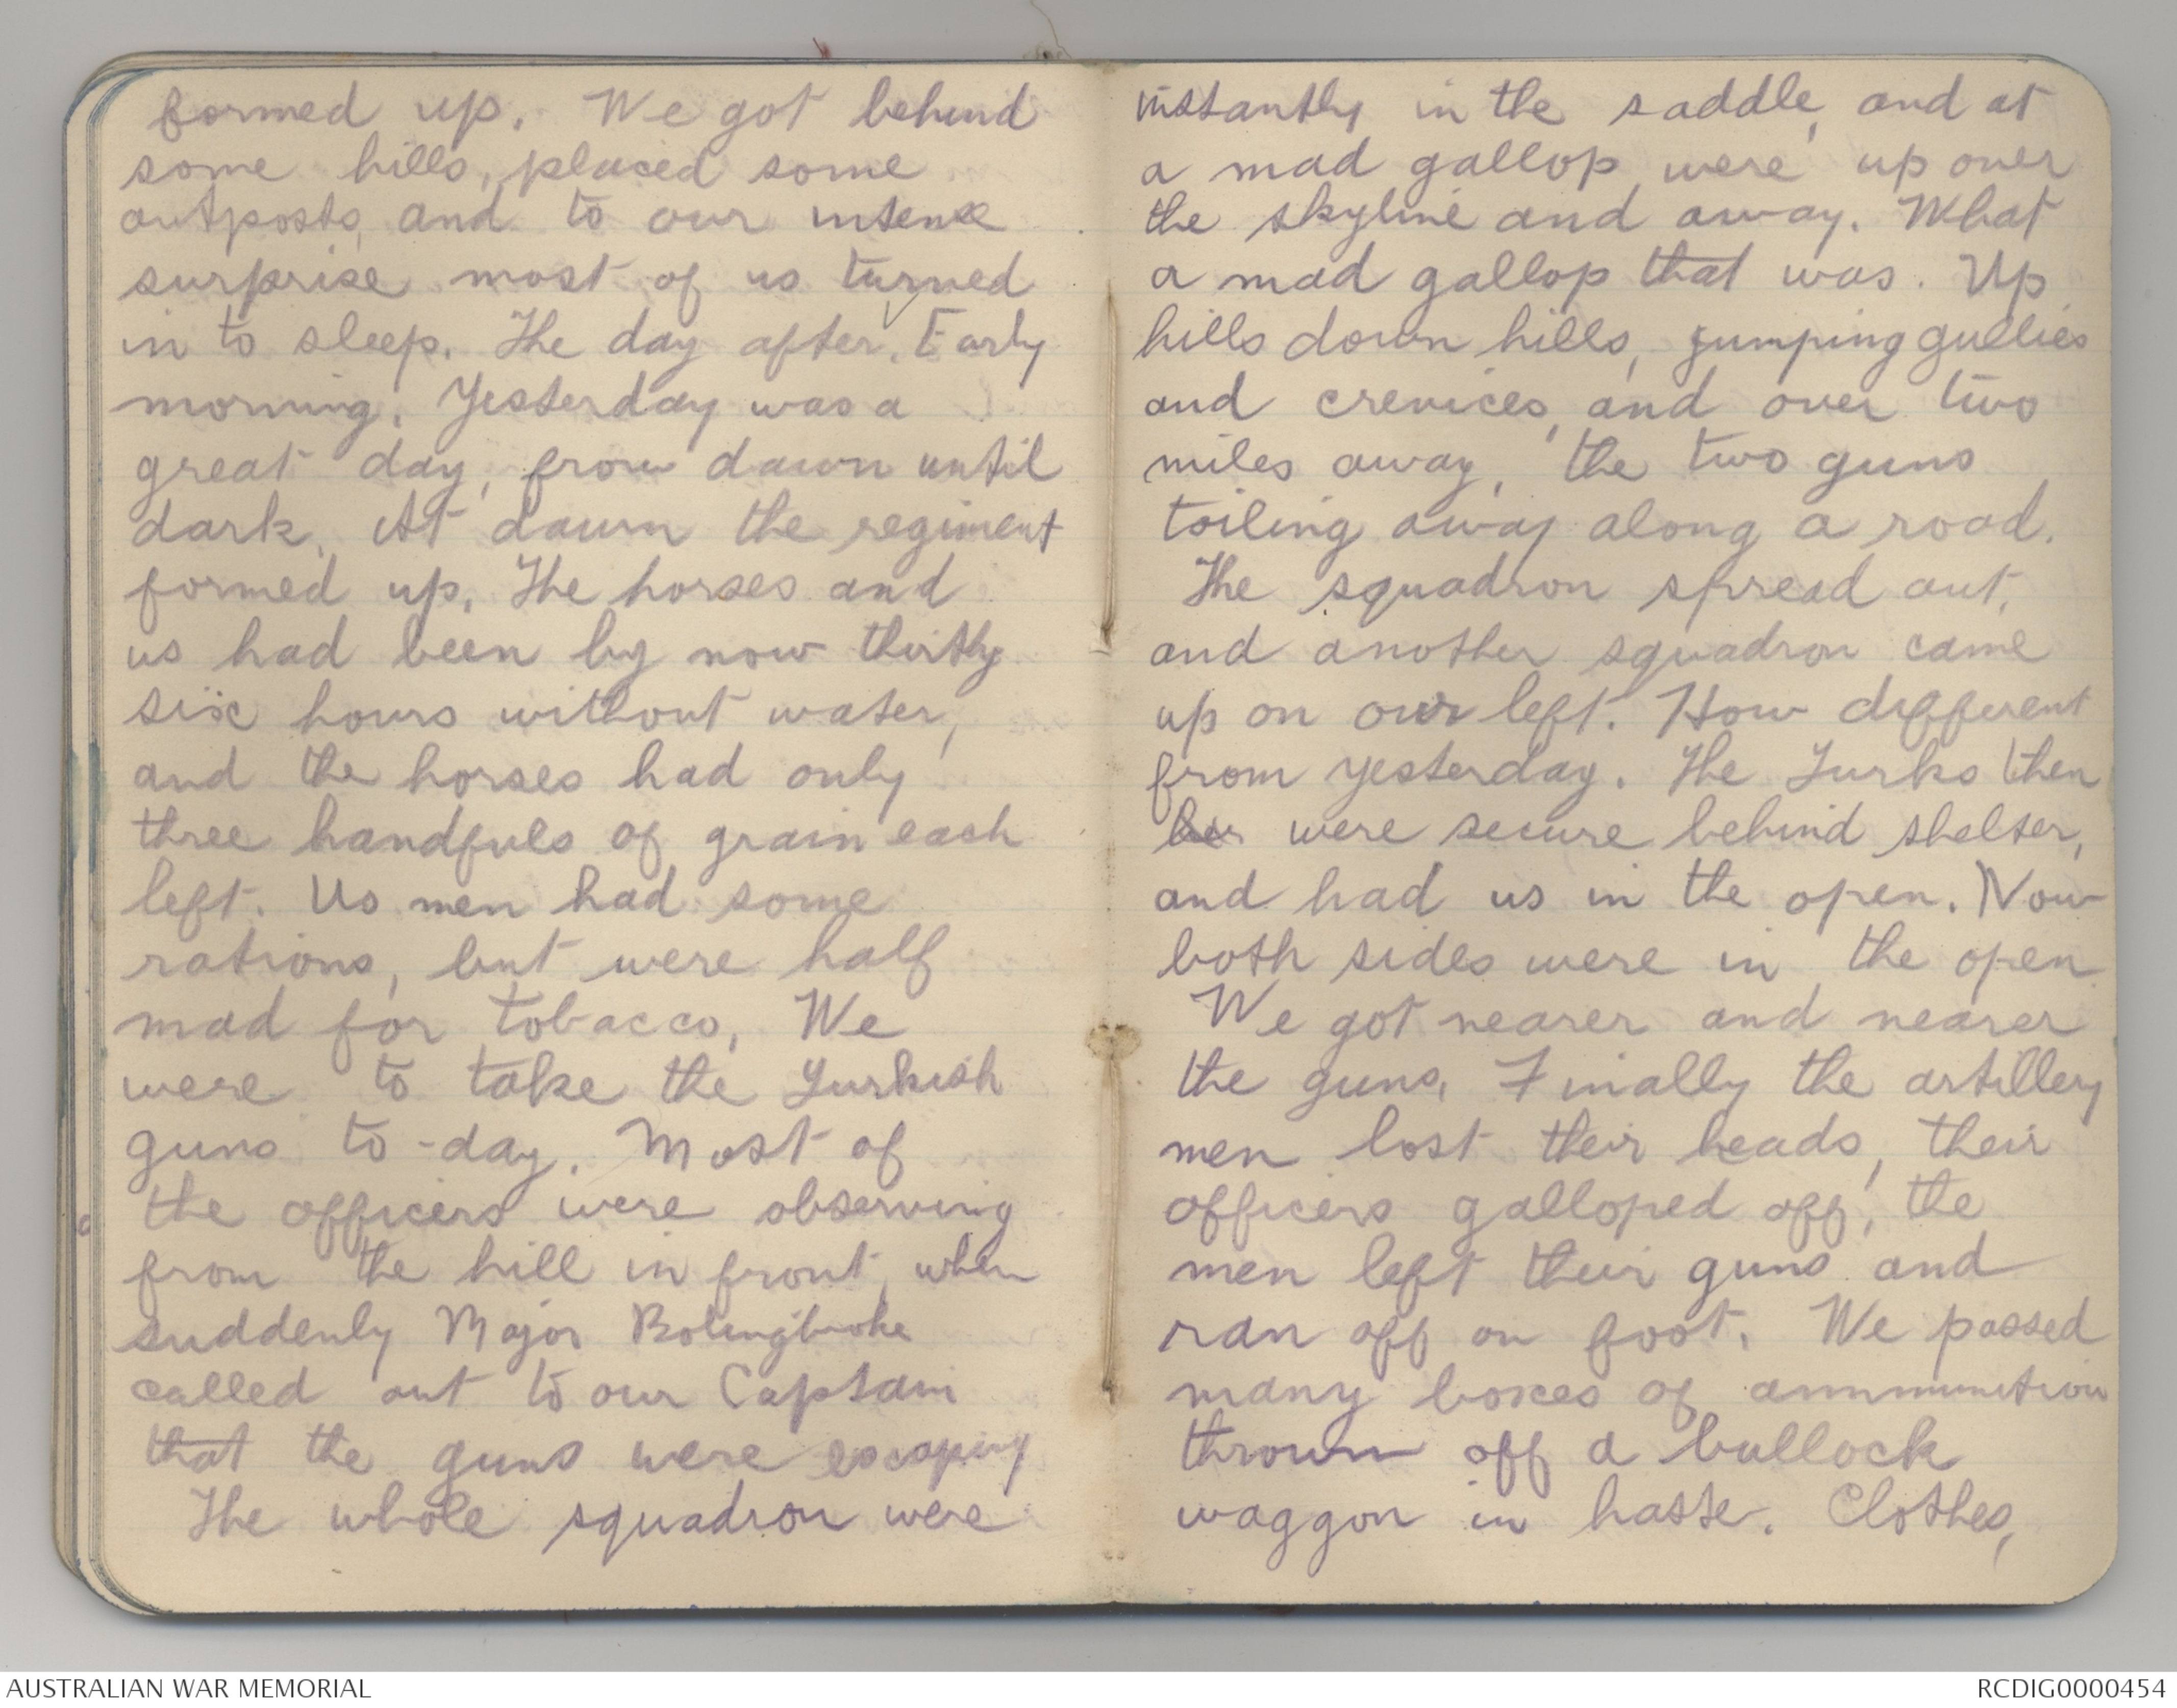 formed up. We got behind
some hills, placed some
outposts, and to our intense
surprise most of us turned
in to sleep. The day after. Early
morning. Yesterday was a
great day, from dawn until
dark. At dawn the regiment
formed up. The horses and
us had been by now thirthy
six hours without water,
and the horses had only
three handfuls of grain each
left. Us men had some
rations, but were half
mad for tobacco. We
were to take the Turkish
guns to-day. Most of
the officers were observing
from the hill in front, when
suddenly Major Bolingbroke
called out to our Captain
that the guns were escaping
The whole squadron were
instantly in the saddle, and at
a mad gallop were up over
the skyline and away. What
a mad gallop that was. Up
hills down hills, jumping gullies
and crevices, and over two
miles away, the two guns
toiling away along a road.
The squadron spread out,
and another squadron came
up on our left. How different
from yesterday. The Turks then
were secure behind shelter,
and had us in the open. Now
both sides were in the open
We got nearer and nearer
the guns. Finally the artillery
men lost their heads, their
officers galloped off, the
men left their guns and
ran off on foot. We passed
many boxes of ammunition
thrown off a bullock
waggon in haste. Clothes,
AUSTRALIAN WAR MEMORIAL
RCDIG0000454